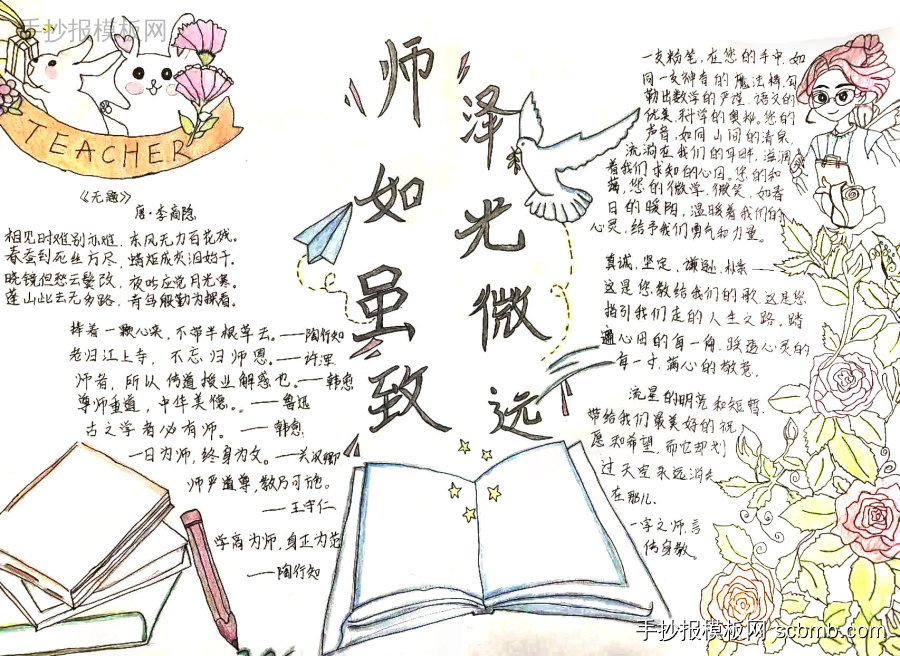 手抄报模板网
TEACHER
《无题》
唐·李商隐
相见时难别亦难，东风无力百花残。
春蚕到死丝方尽，蜡炬成灰泪始干。
晓镜但愁云鬓改，夜吟应觉月光寒。
蓬山此去无多路，青鸟殷勤为探看。
捧着一颗心来，不带半根草去。——陶行知
老归江上寺，不忘归师恩。——许浑
师者，所以传道授业解惑也。——韩愈
尊师重道，中华美德。。——鲁迅
古之学者必有师。——韩愈
一日为师，终身为父。——关汉卿
师严道尊，教乃可施。
——王守仁
学高为师，身正为范
——陶行知
师泽
如光
虽微
致远
一支粉笔，在您的手中，如
同一支神奇的魔法棒，勾
勒出数学的严谨，语文的
优美，科学的奥秘。您的
声音，如同山间的清泉，
流淌在我们的耳畔，滋润
着我们求知的心田。您的和
蔼，您的微学，微笑，如春
日的暖阳，温暖着我们的
心灵，给予我们勇气和力量。
真诚，坚定，谦逊，朴素——
这是您教给我们的歌，这是您
指引我们走的人生之路。踏
遍心田的每一角，踩透心灵的
每一寸，满心的敬意。
流星的明亮和短暂
带给我们最美好的祝
愿和希望，而它却划
过天空永远消失
在那儿
一字之师，言
传身教。
手抄报模板网 scbmb.com